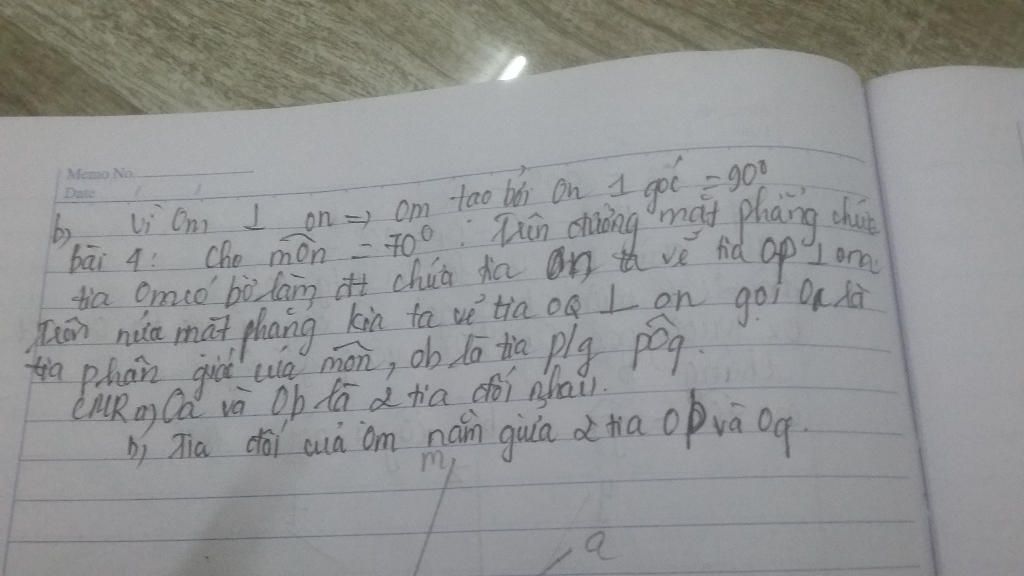 Memo No.
Date / /
b, Vì Om ⊥ on => Om tạo bởi On 1 góc = 90⁰
bài 4: Cho môn = 70⁰ : Trên mặt phẳng chứa
tia Om có bờ là đt chứa tia On ta vẽ tia Op ⊥ om.
Trên nửa mặt phẳng kia ta vẽ tia OQ ⊥ on gọi Oa là
tia phân giác của môn, ob là tia p/g pôq.
CMR a) Oa và Ob là 2 tia đối nhau.
b, Tia đối cuả Om nằm giữa 2 tia Op và Oq.
m
a